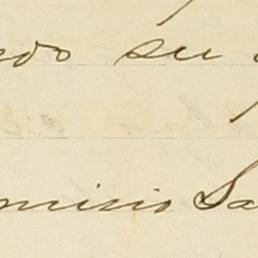 edo su
omisio Sa